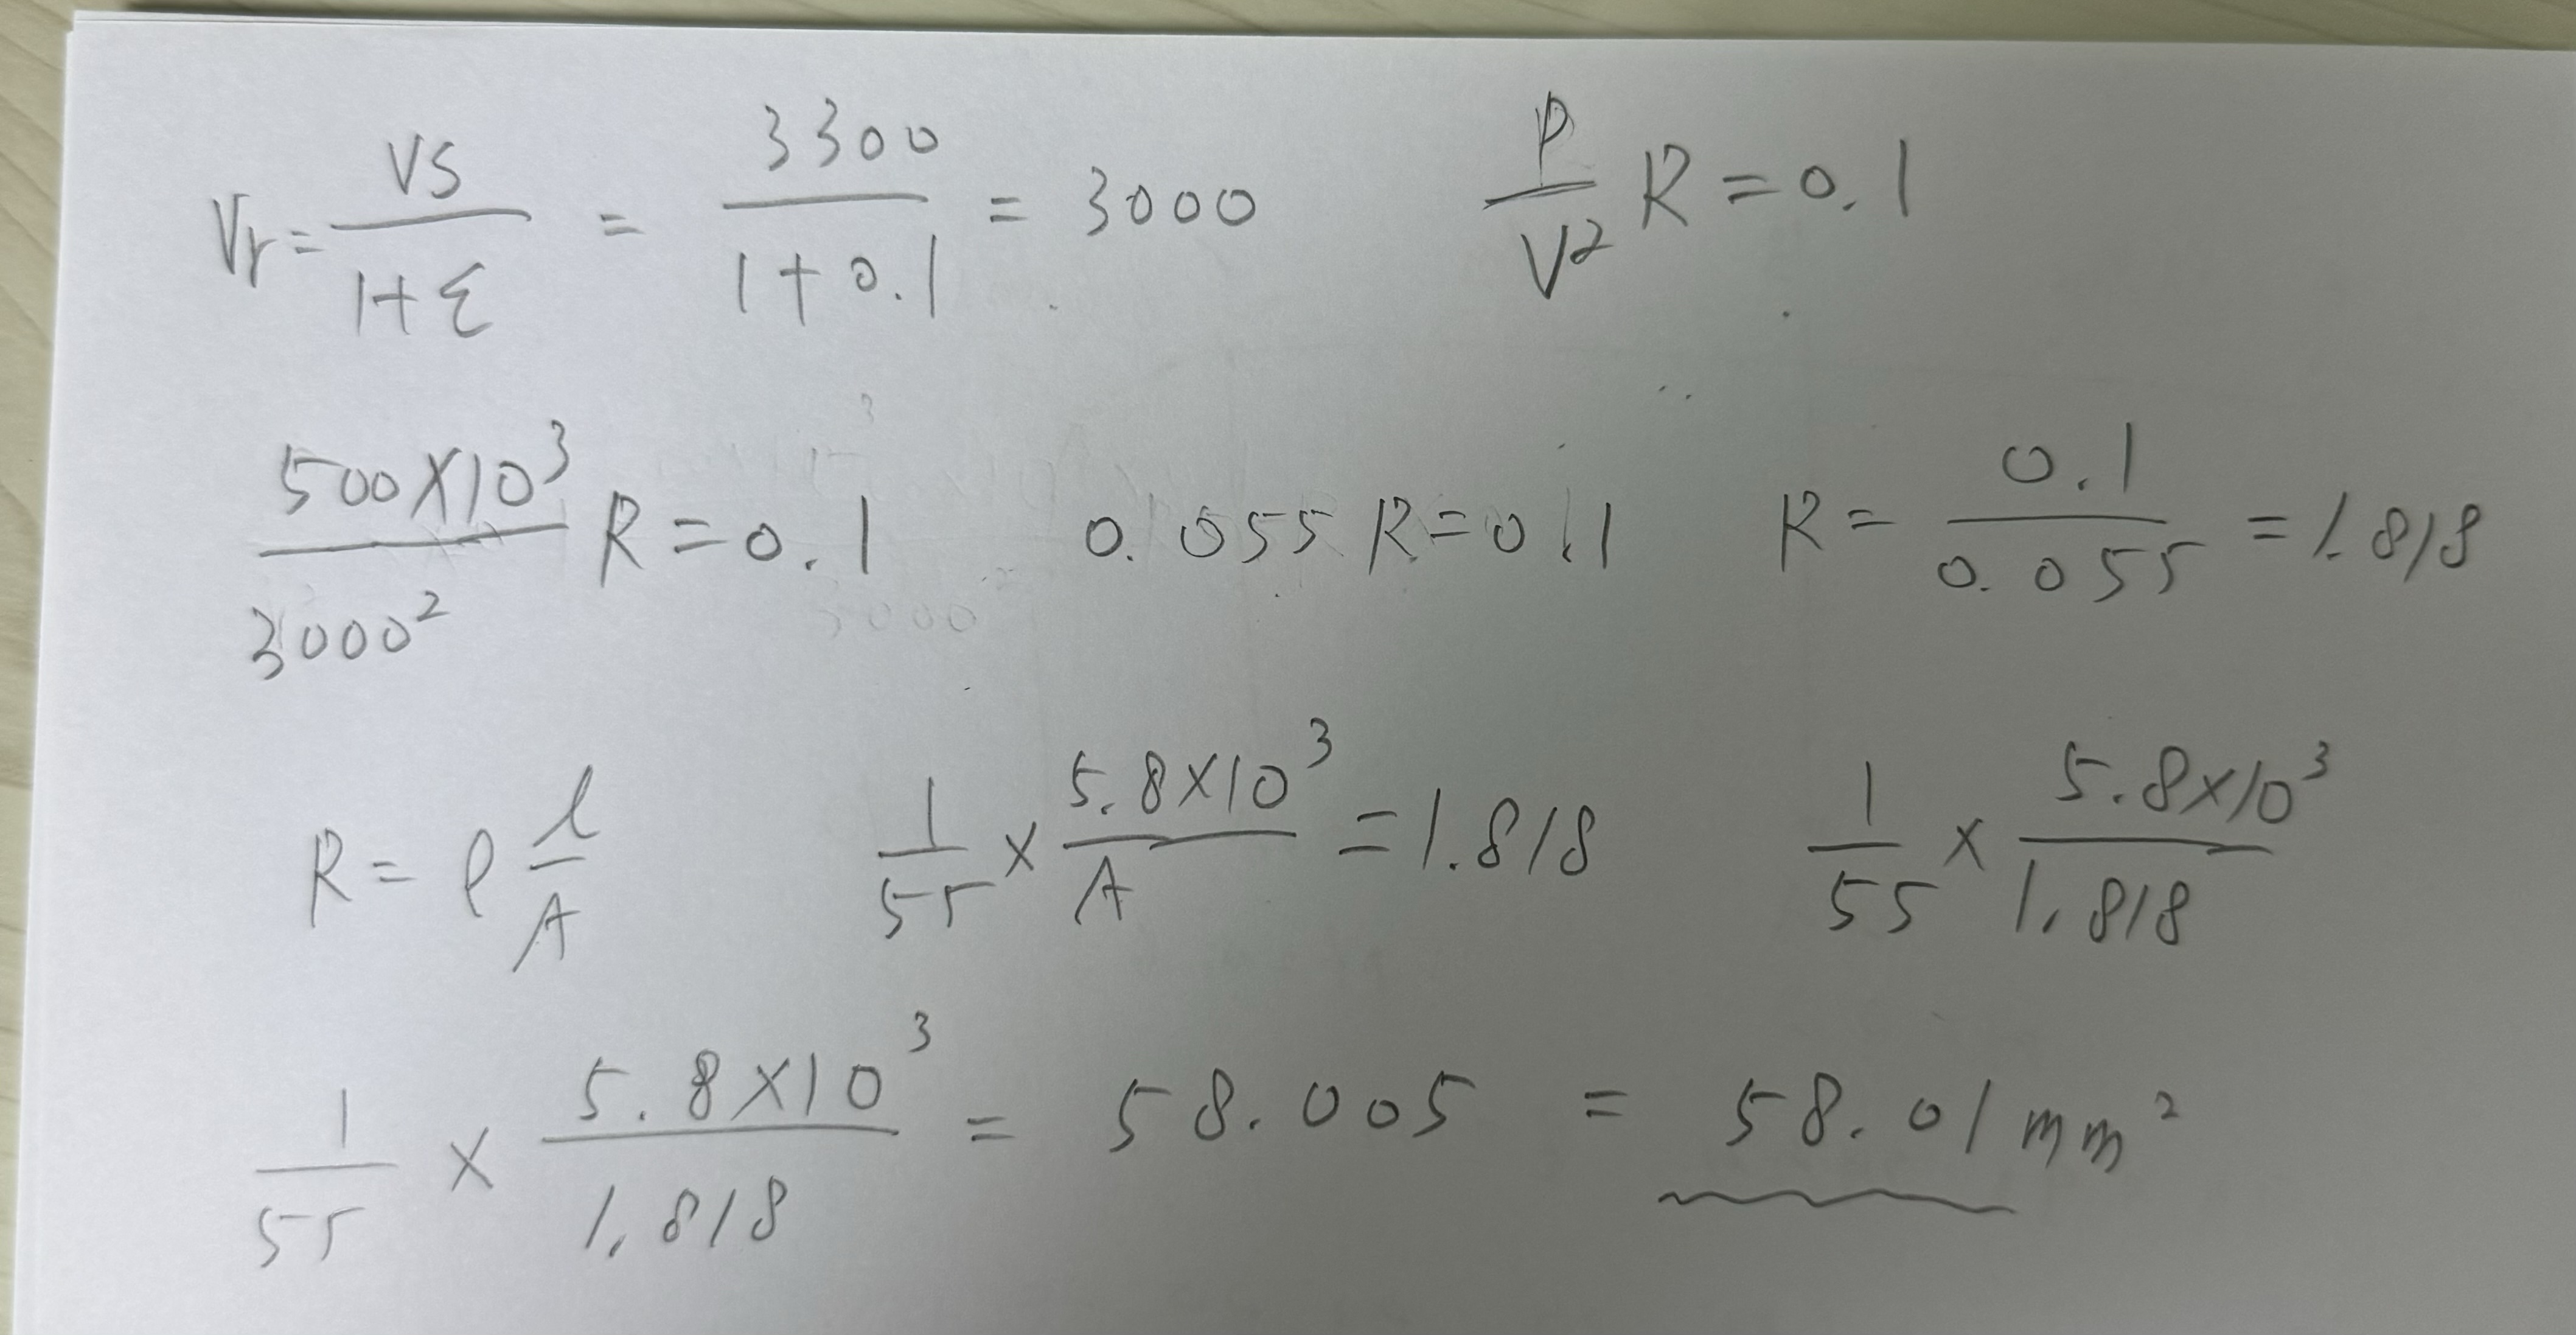 Vr = VS / 1+ε = 3300 / 1+0.1 = 3000 P / V² R = 0.1
500×10³ / 3000² R = 0.1 0.055 R = 0.1 R = 0.1 / 0.055 = 1.818
R = ρ l / A 1 / 55 × 5.8×10³ / A = 1.818 1 / 55 × 5.8×10³ / 1.818
1 / 55 × 5.8×10³ / 1.818 = 58.005 = 58.01 mm²